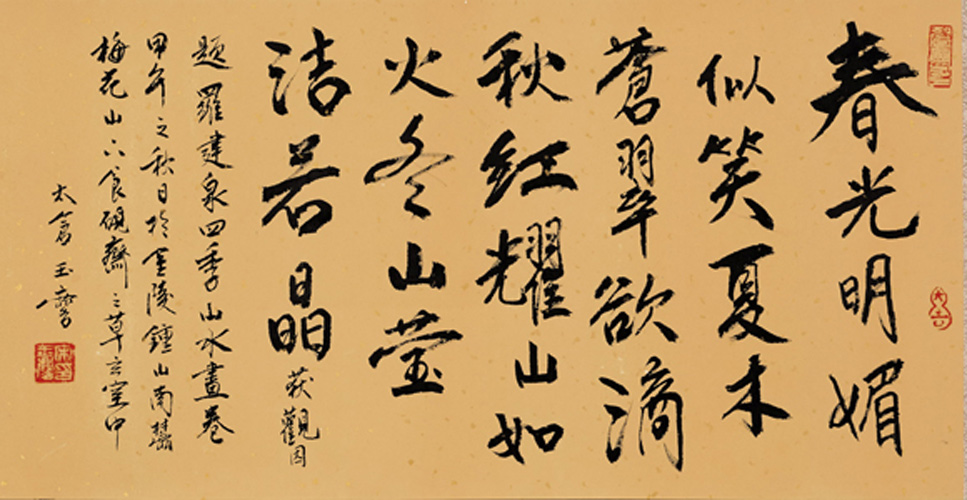 春光明媚
似笑夏木
蒼翠欲滴
秋紅耀山如
火冬山莹
洁若晶 获觀因
题羅建泉四季山水畫卷
甲午之秋日於金陵鍾山南麓
梅花山下食硯齋之草玄室中
太倉玉麐